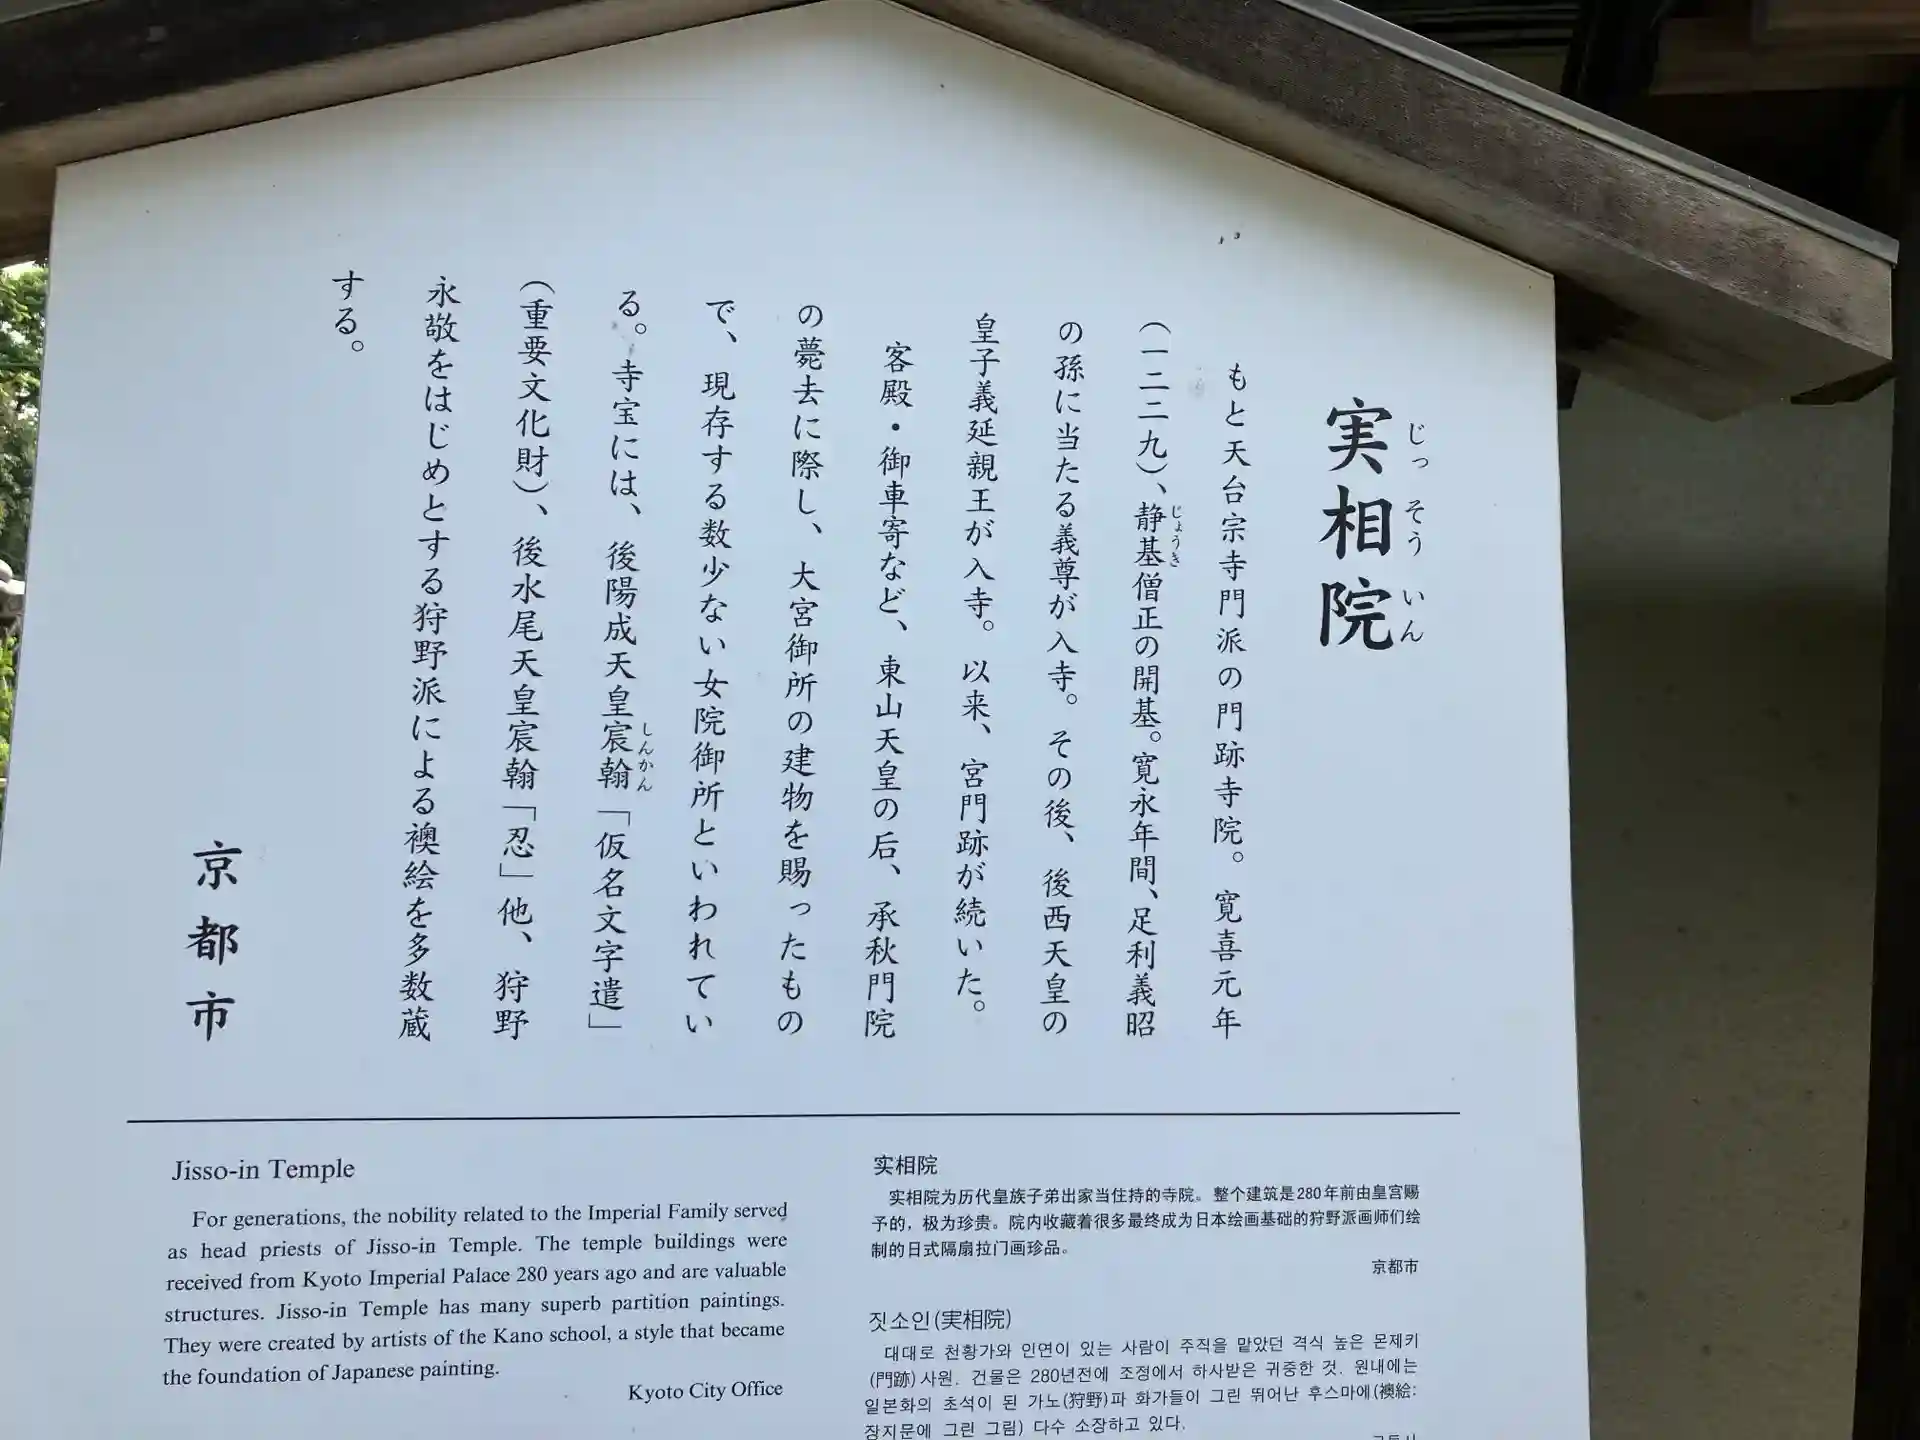 実相院
じっそういん
もと天台宗寺門派の門跡寺院。寛喜元年
(一二二九)、静基僧正の開基。寛永年間、足利義昭
じょうき
の孫に当たる義尊が入寺。その後、後西天皇の
皇子義延親王が入寺。以来、宮門跡が続いた。
客殿・御車寄など、東山天皇の后、承秋門院
の薨去に際し、大宮御所の建物を賜ったもの
で、現存する数少ない女院御所といわれてい
る。寺宝には、後陽成天皇宸翰「仮名文字遣」
しんかん
(重要文化財)、後水尾天皇宸翰「忍」他、狩野
永敬をはじめとする狩野派による襖絵を多数蔵
する。
京都市
Jisso-in Temple
For generations, the nobility related to the Imperial Family served
as head priests of Jisso-in Temple. The temple buildings were
received from Kyoto Imperial Palace 280 years ago and are valuable
structures. Jisso-in Temple has many superb partition paintings.
They were created by artists of the Kano school, a style that became
the foundation of Japanese painting.
Kyoto City Office
实相院
实相院为历代皇族子弟出家当住持的寺院。整个建筑是280年前由皇宫赐
予的，极为珍贵。院内收藏着很多最终成为日本绘画基础的狩野派画师们绘
制的日式隔扇拉门画珍品。
京都市
짓소인(実相院)
대대로 천황가와 인연이 있는 사람이 주직을 맡았던 격식 높은 몬제키
(門跡)사원. 건물은 280년전에 조정에서 하사받은 귀중한 것. 원내에는
일본화의 초석이 된 가노(狩野)파 화가들이 그린 뛰어난 후스마에(襖絵:
장지문에 그린 그림) 다수 소장하고 있다.